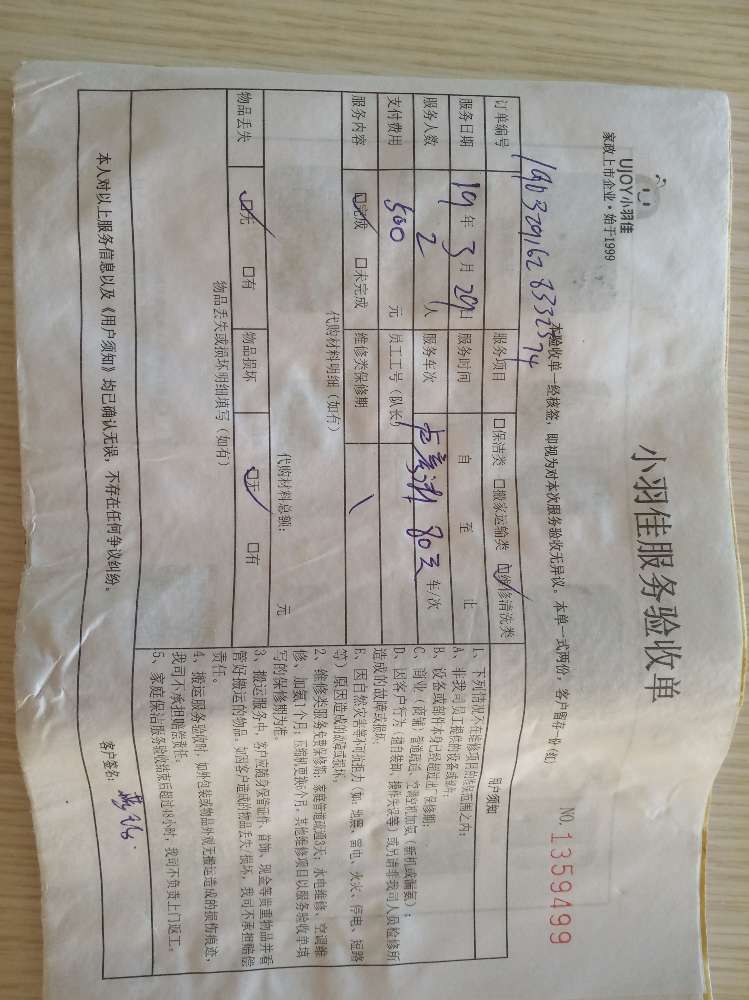 UJOY小羽佳
家政上市企业·始于1999
小羽佳服务验收单
NO. 1359499
本验收单一经核签，即视为对本次服务验收无异议。本单一式两份，客户留存一份(红)
订单编号
服务项目 □保洁类 □搬家运输类 ☑维修清洗类
服务日期 19年3月29日 服务时间 自 至 止
服务人数 2人 服务车次 车/次
支付费用 500元 员工工号(队长)
服务内容 ☑完成 □未完成 维修类保修期
代购材料明细(如有)
代购材料总额: 元
物品丢失 ☑无 □有 物品损坏 ☑无 □有
物品丢失或损坏明细填写(如有)
用户须知
1、下列情况不在维修项目的保修范围之内:
A、非我司员工提供的设备或部件
B、设备或部件本身已经超过保修期;
C、商业(商铺)管道疏通、空调空机加氨(新机或漏氨);
D、因客户行为(擅自装卸、操作失误等)或另请非我司人员检修所
造成的故障或损坏;
E、因自然灾害等不可抗拒力(如:地震、雷电、火灾、停电、短路
等)原因造成的故障或损坏。
2、维修类服务免费保修期:家庭管道疏通3天;水电维修、空调维
修、加氨1个月;压缩机更换6个月,其他维修项目以服务验收单填
写的保修期为准。
3、搬运服务中,客户应随身保管证件、首饰、现金等贵重物品并看
管好搬运的物品,如因客户造成的物品丢失/损坏,我司不承担赔偿
责任。
4、搬运服务验收时,如外包装或物品外观无搬运造成的损伤痕迹,
我司不承担赔偿责任。
5、家庭保洁服务验收结束后超过48小时,我司不负责上门返工。
本人对以上服务信息以及《用户须知》均已确认无误,不存在任何争议纠纷。
客户签名: